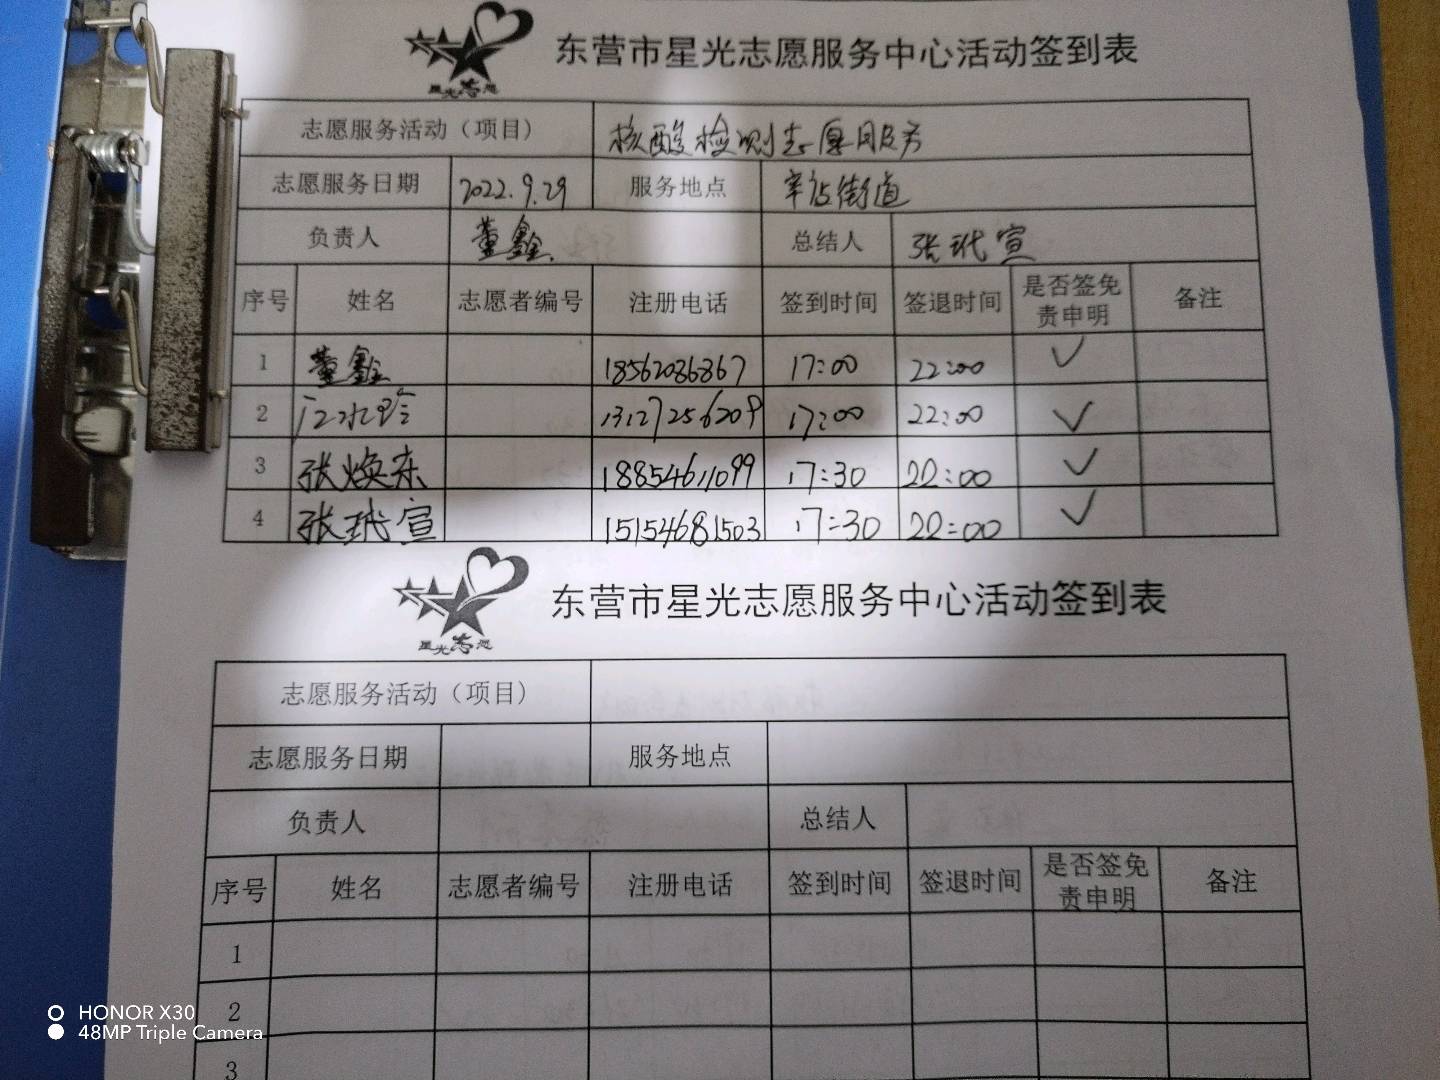 星光志愿
东营市星光志愿服务中心活动签到表
志愿服务活动（项目） 核酸检测志愿服务
志愿服务日期 2022.9.29 服务地点 辛店街道
负责人 董鑫 总结人 张玳宣
序号 姓名 志愿者编号 注册电话 签到时间 签退时间 是否签免责申明 备注
1 董鑫 18562086867 17:00 22:00 ✓
2 江水玲 13127256209 17:00 22:00 ✓
3 张焕东 18854611099 17:30 22:00 ✓
4 张玳宣 15154681503 17:30 22:00 ✓
星光志愿
东营市星光志愿服务中心活动签到表
志愿服务活动（项目）
志愿服务日期 服务地点
负责人 总结人
序号 姓名 志愿者编号 注册电话 签到时间 签退时间 是否签免责申明 备注
1
2
3
HONOR X30
48MP Triple Camera